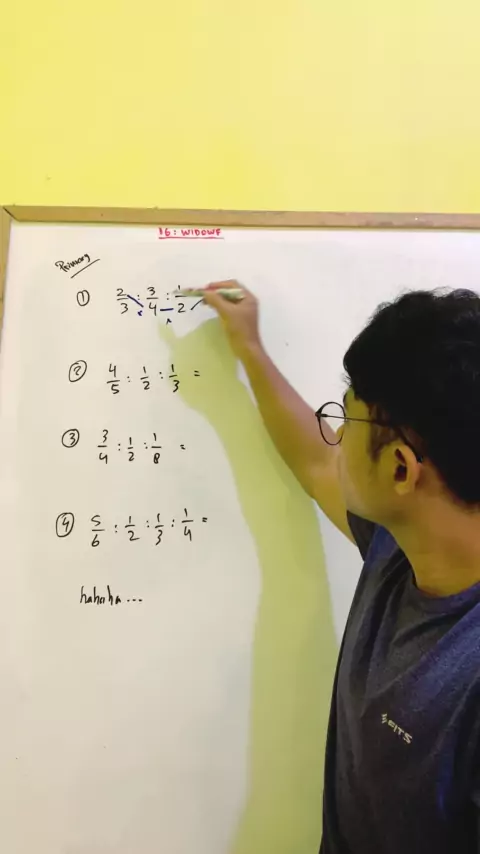 IG: WIDOWF
Primary
① 2/3 : 3/4 : 1/2
② 4/5 : 1/2 : 1/3 =
③ 3/4 : 1/2 : 1/8 =
④ 5/6 : 1/2 : 1/3 : 1/4 =
hahaha...